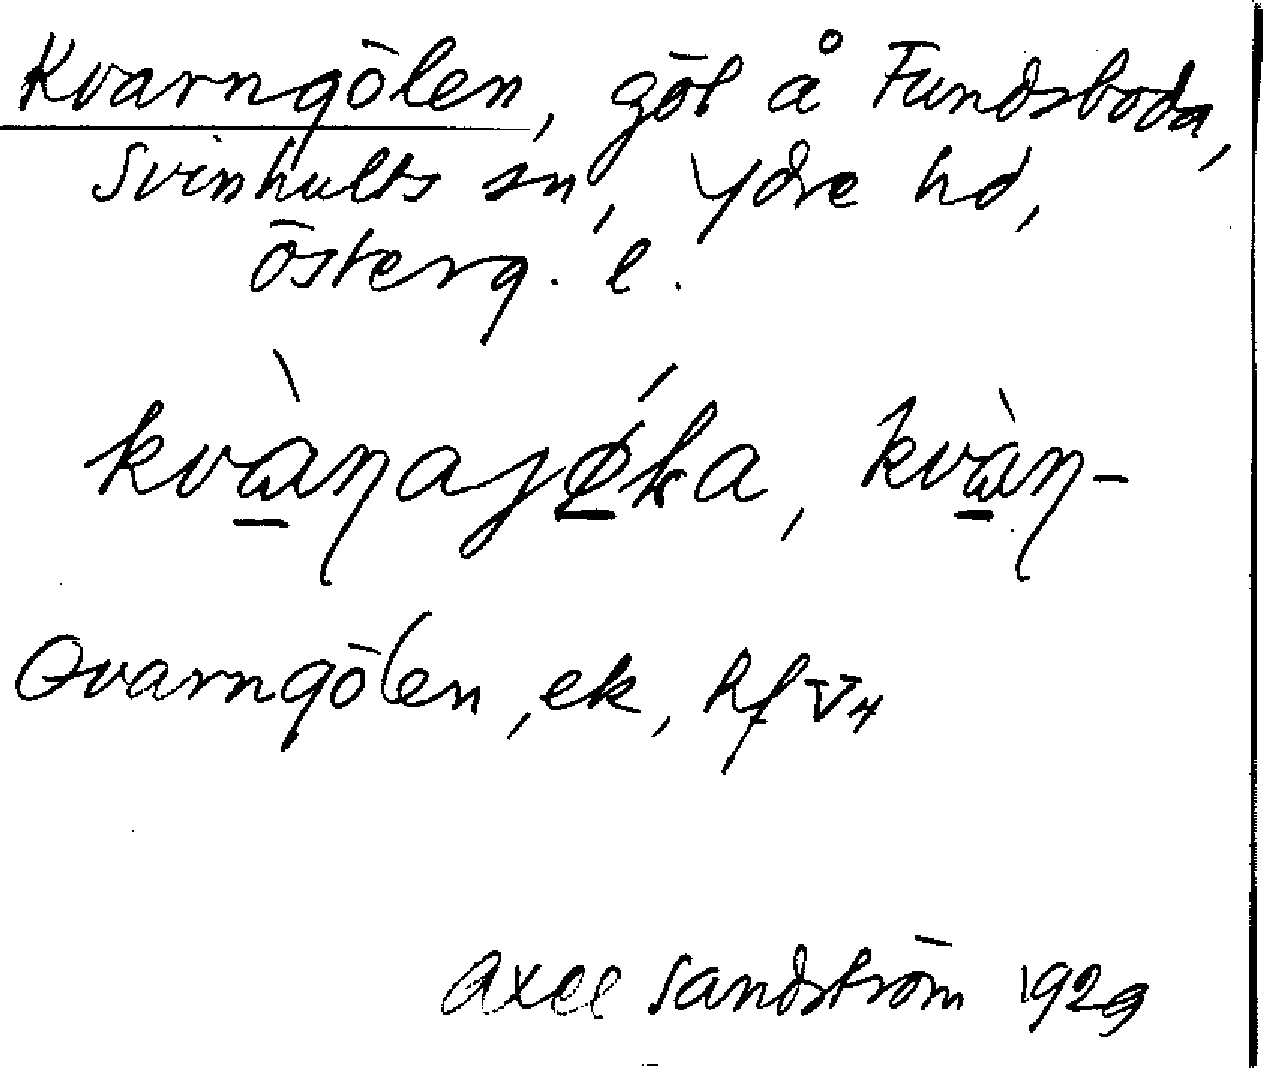 Kvarngölen, göl å Fundsboda,
Svinhults sn, Ydre hd,
Österg. l.
kvànajǿka, kvàn-
Qvarngölen, ek, Hf V4
Axel Sandström 1929